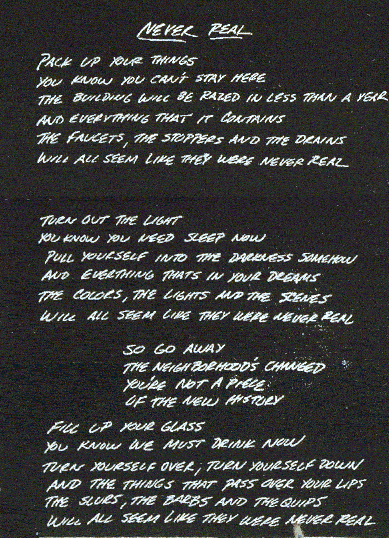 NEVER REAL
PACK UP YOUR THINGS
YOU KNOW YOU CAN'T STAY HERE
THE BUILDING WILL BE RAZED IN LESS THAN A YEAR
AND EVERYTHING THAT IT CONTAINS
THE FAUCETS, THE STOPPERS AND THE DRAINS
WILL ALL SEEM LIKE THEY WERE NEVER REAL
TURN OUT THE LIGHT
YOU KNOW YOU NEED SLEEP NOW
PULL YOURSELF INTO THE DARKNESS SOMEHOW
AND EVERTHING THATS IN YOUR DREAMS
THE COLORS, THE LIGHTS AND THE SCENES
WILL ALL SEEM LIKE THEY WERE NEVER REAL
SO GO AWAY
THE NEIGHBORHOOD'S CHANGED
YOU'RE NOT A PIECE
OF THE NEW HISTORY
FILL UP YOUR GLASS
YOU KNOW WE MUST DRINK NOW
TURN YOURSELF OVER, TURN YOURSELF DOWN
AND THE THINGS THAT PASS OVER YOUR LIPS
THE SLURS, THE BARBS AND THE QUIPS
WILL ALL SEEM LIKE THEY WERE NEVER REAL